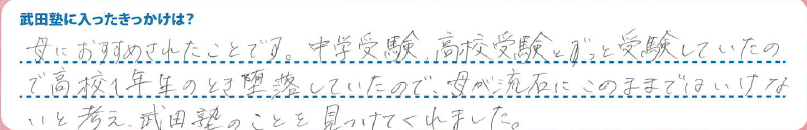 武田塾に入ったきっかけは？
母におすすめされたことです。中学受験、高校受験とずっと受験していたの
で高校1年生のとき堕落していたので、母が流石にこのままではいけな
いと考え、武田塾のことを見つけてくれました。